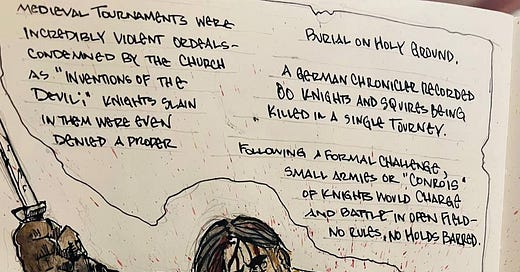 MEDIEVAL TOURNAMENTS WERE
INCREDIBLY VIOLENT ORDEALS-
CONDEMNED BY THE CHURCH
AS "INVENTIONS OF THE
DEVIL;" KNIGHTS SLAIN
IN THEM WERE EVEN
DENIED A PROPER
BURIAL ON HOLY GROUND.
A GERMAN CHRONICLER RECORDED
80 KNIGHTS AND SQUIRES BEING
KILLED IN A SINGLE TOURNEY.
FOLLOWING A FORMAL CHALLENGE,
SMALL ARMIES OR "CONROIS"
OF KNIGHTS WOULD CHARGE
AND BATTLE IN OPEN FIELD-
NO RULES, NO HOLDS BARRED.